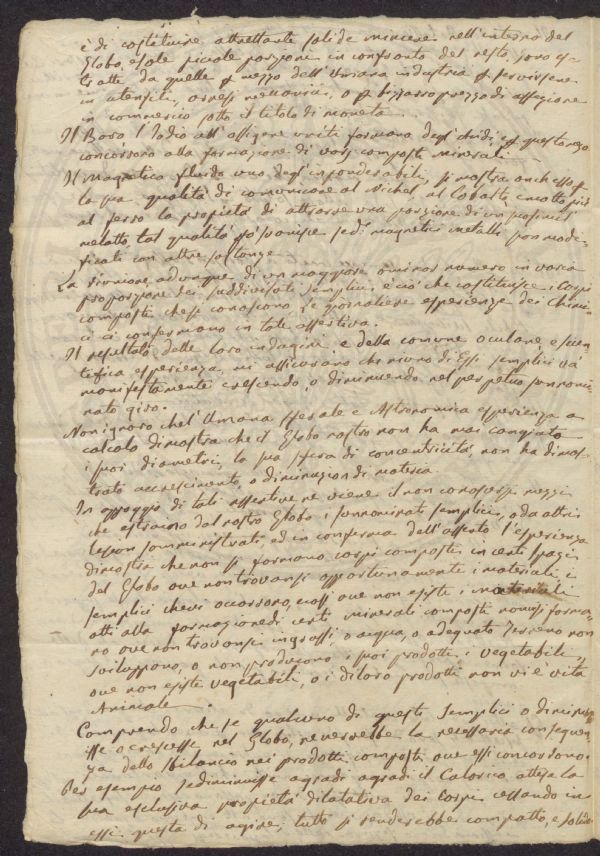 è di costituire altrettante solide miniere nell'interno del
Globo, e sole picole porzione in confronto del resto, sono es=
tratte da quelle p mezzo dell'Umana industria p servirsene
in utensili, arnesi o p bizzarro prezzo di affezione
in commercio sotto il titolo di moneta.
Il Boro l'Iodio all'ossigene uniti formano degl'Acidi e p questo mezo
concorrono alla formazione di varj composti minerali.
Il Magnetico fluido uno degl'inponderabili, si mostra anch'esso p
la sua qualità di comunicare al Nichel, al Cobalto, e molto più
al ferro la propietà di attrarre una porzione di un
metallo, tal qualità sudi magnetici metalli son mode=
ficati con altre sostanze.
La Unione adunque di un maggiore o minor numero in varia
proporzione dei suddivisati semplici, è ciò che costituisce i Corpi
composti che si conoscono. Le giornaliere esperienze dei Chimi=
ci ci confermano in tale assertiva.
Il resultato delle loro indagini e della comune oculare, e scien=
tifica esperienza, mi assicurano che niuno di Essi semplici và
manifestamente crescendo, o diminuendo nel perpetuo sunnomi=
nato giro.
Non ignoro che l'Umana sferale e Astronomica esperienza a
calcolo dimostra che il Globo nostro non ha mai cangiato
i suoi diametri, la sua sfera di concentricità, non ha dimos=
trato accrescimento, o diminuzion di materia.
In appoggio di tali assertive ne viene il non conoscersi mezzi
che estraino dal nostro Globo i sunnominati semplici, o da altri
sommistrati, ed in conferma dell'asserto l'esperienza
dimostra che non si formano corpi composti in certi spazi
del Globo ove non trovansi opportunamente i materiali, i
semplici che vi occorrono, cioè ove non esiste i materiali
atti alla formazione di certi minerali composti non si forma=
no ove non trovansi ingrassi, o acqua, o adeguato Terreno non
sviluppano, o non producono i suoi prodotti i vegetabili,
ove non esiste vegetabili, o i di loro prodotti non vi è vita
Animale.
Comprendo che se qualcuno di questi semplici o diminu=
isse o cresesse nel Globo, ne verrebbe la necessaria conseguen=
za dello sbilancio nei prodotti composti ove essi concorrono.
Per esempio se diminuisse a gradi a gradi il Calorico attesa la
sua esclusiva propietà dilatativa dei Corpi cessando in
essi questa di agire, tutto si renderebbe compatto, e solido